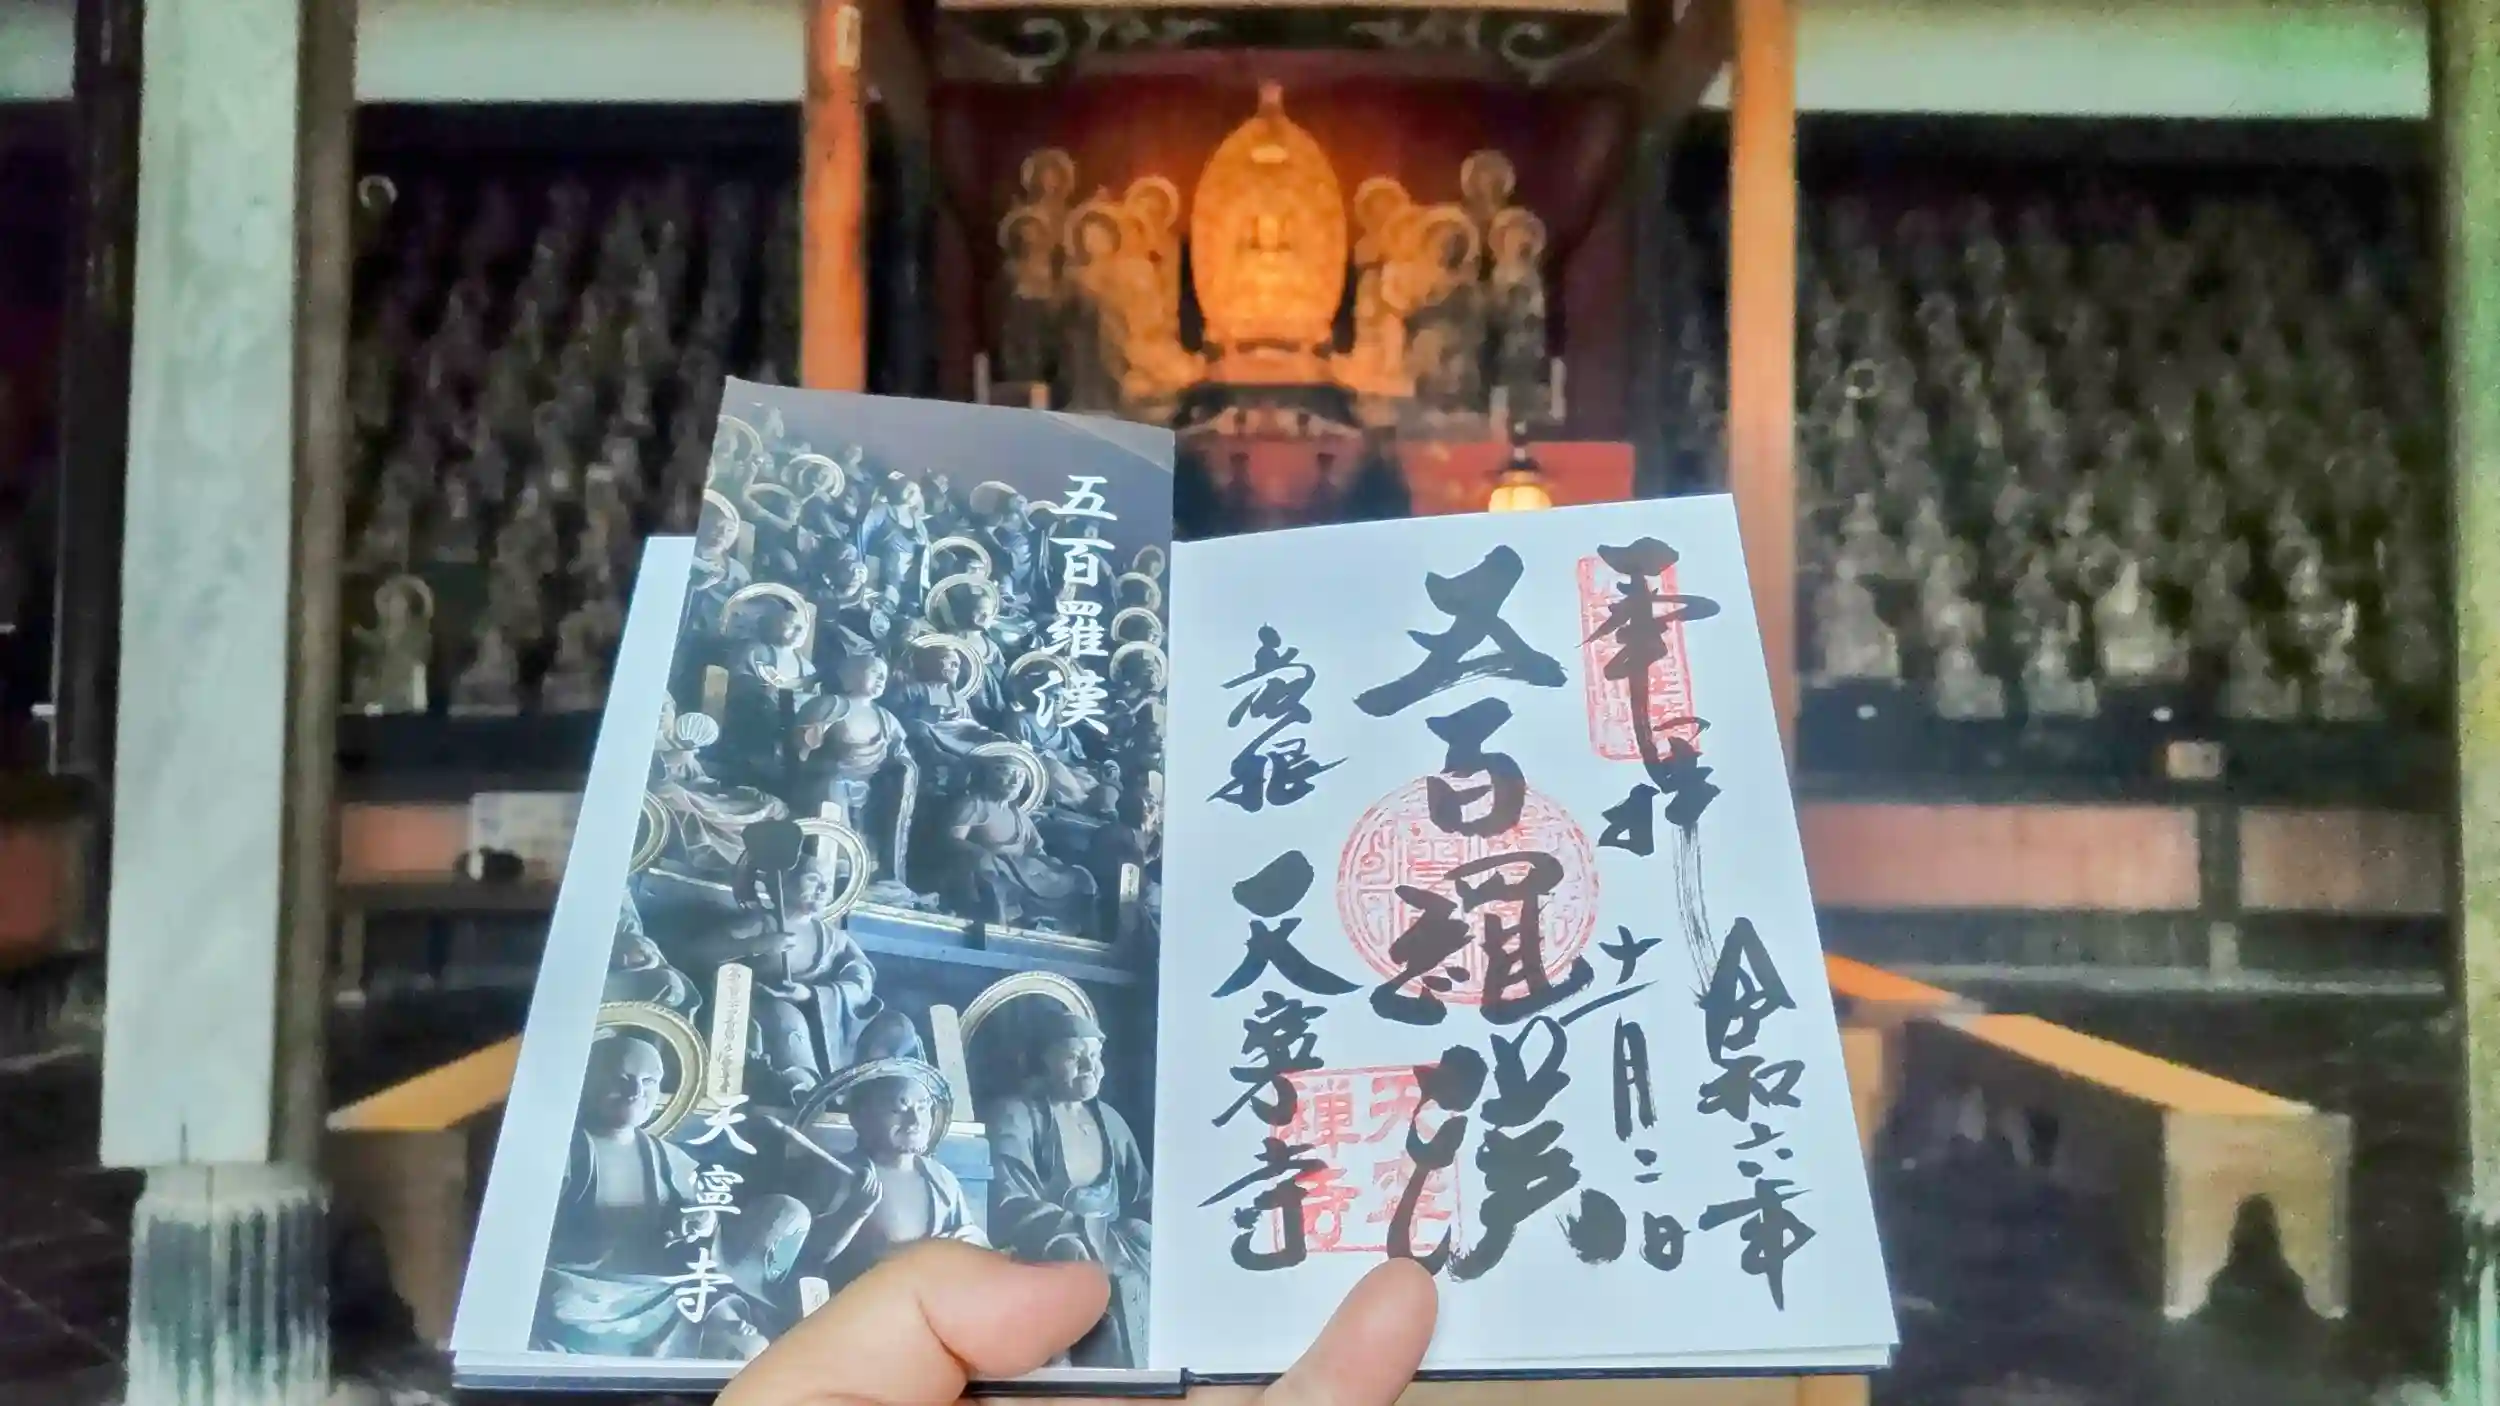 五百羅漢
天寧寺
奉拝
令和六年
十一月二日
五百羅漢
彦根
天寧寺
天寧
禅寺